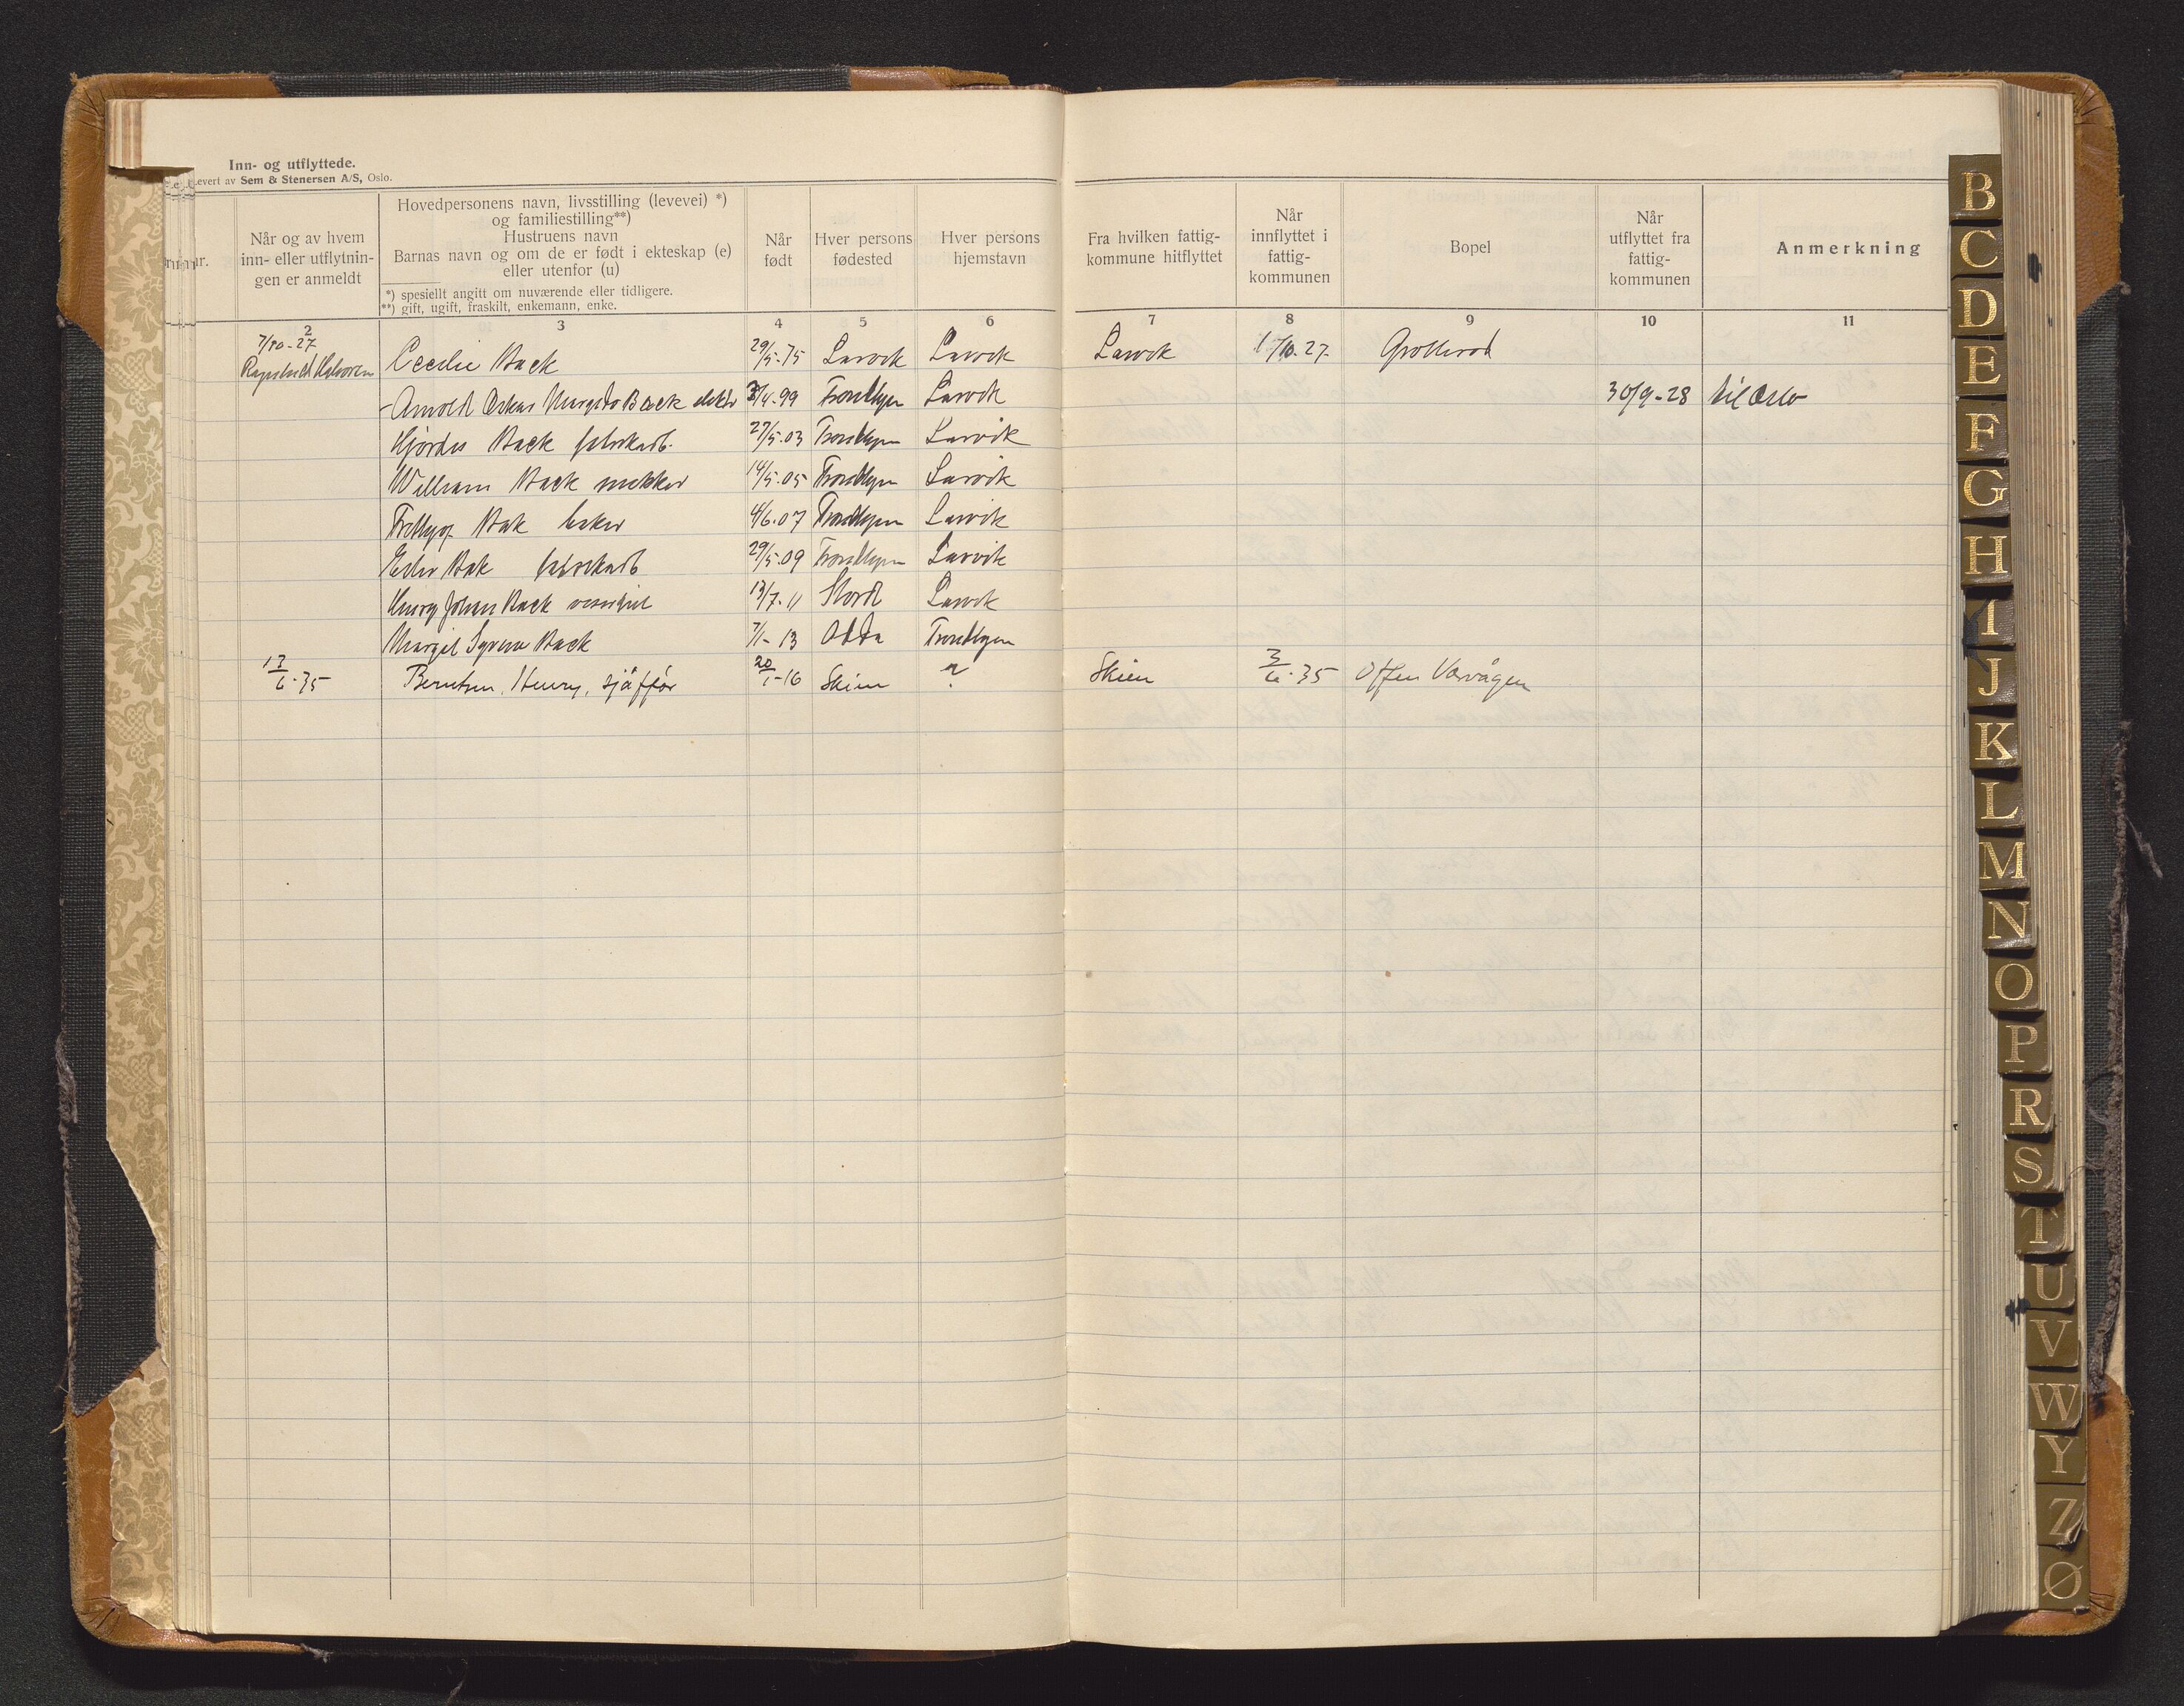 Inn- og utflyttede.
Levert av Sem & Stenersen A/S, Oslo.
nr.
Når og av hvem
inn- eller utflytnin-
gen er anmeldt
Hovedpersonens navn, livsstilling (levevei) *)
og familiestilling**)
Hustruens navn
Barnas navn og om de er født i ekteskap (e)
eller utenfor (u)
*) spesiellt angitt om nuværende eller tidligere.
**) gift, ugift, fraskilt, enkemann, enke.
Når
født
Hver persons
fødested
Hver persons
hjemstavn
Fra hvilken fattig-
kommune hitflyttet
Når
innflyttet i
fattig-
kommunen
Bopel
Når
utflyttet fra
fattig-
kommunen
Anmerkning
2 3 4 5 6 7 8 9 10 11
7/10-27
Cecilie Back 29/5-75 Larvik Larvik Larvik 1/10-27
Arnold Oskar Back 99 Trondhjem Larvik 30/9-28 til Oslo
Hjørdis Back 27/5.03 Trondhjem Larvik
William Back snekker 14/5.05 Trondhjem Larvik
Back baker 4/6.07 Trondhjem Larvik
Back 29/5.09 Trondhjem Larvik
Henry Johan Back visergut 13/7.11 Stord Larvik
Margit Back 7/1-13 Odda Trondhjem
13/6-35 Berntsen, Henry, sjåffør 20/1-16 Skien ? Skien 3/6-35 Offen Varvågen
B
C
D
E
F
G
H
I
J
K
L
M
N
O
P
R
S
T
U
V
W
Y
Z
Ø